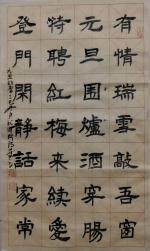 有情瑞雪敲吾窗
元旦围爐酒穿腸
特聘红梅来續愛
登門閑静話家常